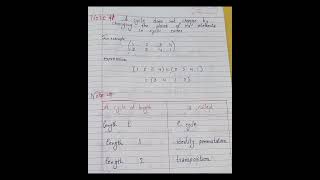 Note :- A cycle does not change by
changing the places of its elements
in cyclic order
For example
(1 2 3 4
2 3 4 1)
(1 2 3 4) = (2 3 4 1)
Note :-
A cycle of length is called
length
length 1 identity permutation
length 2 transposition